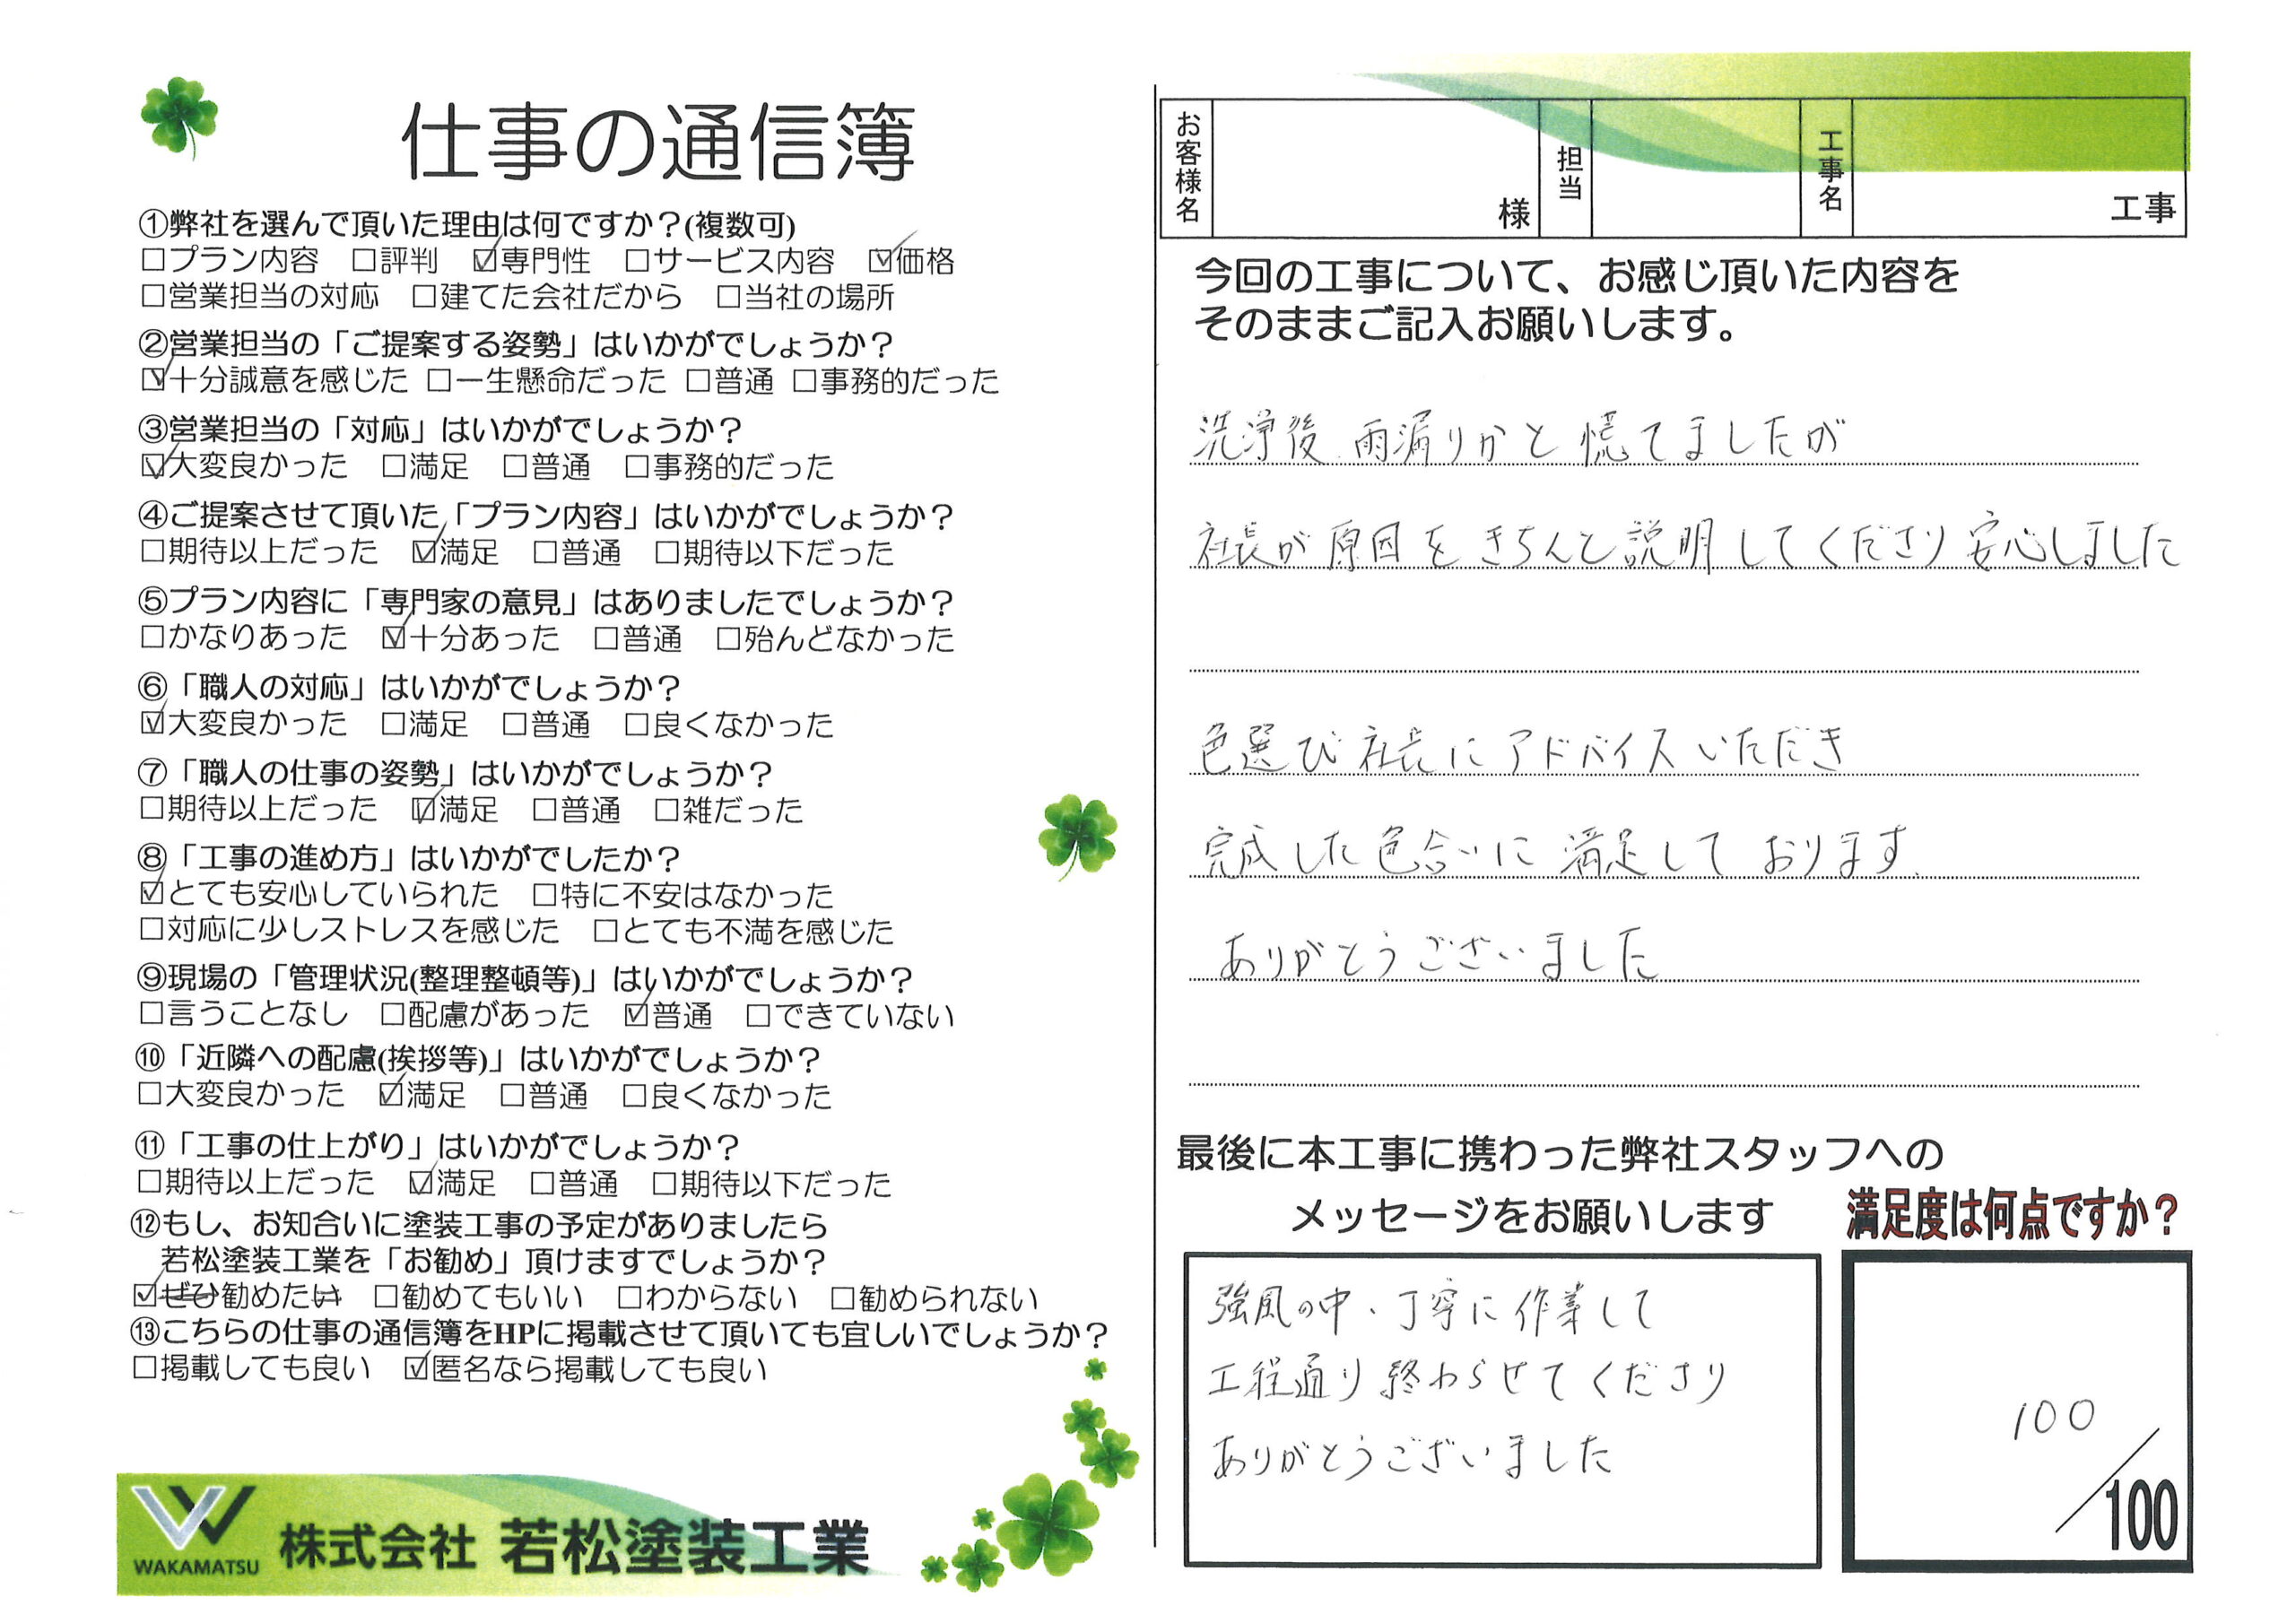 仕事の通信簿
①弊社を選んで頂いた理由は何ですか？(複数可)
□プラン内容 □評判 ☑専門性 □サービス内容 ☑価格
□営業担当の対応 □建てた会社だから □当社の場所
②営業担当の「ご提案する姿勢」はいかがでしょうか？
☑十分誠意を感じた □一生懸命だった □普通 □事務的だった
③営業担当の「対応」はいかがでしょうか？
☑大変良かった □満足 □普通 □事務的だった
④ご提案させて頂いた「プラン内容」はいかがでしょうか？
□期待以上だった ☑満足 □普通 □期待以下だった
⑤プラン内容に「専門家の意見」はありましたでしょうか？
□かなりあった ☑十分あった □普通 □殆んどなかった
⑥「職人の対応」はいかがでしょうか？
☑大変良かった □満足 □普通 □良くなかった
⑦「職人の仕事の姿勢」はいかがでしょうか？
□期待以上だった ☑満足 □普通 □雑だった
⑧「工事の進め方」はいかがでしたか？
☑とても安心していられた □特に不安はなかった
□対応に少しストレスを感じた □とても不満を感じた
⑨現場の「管理状況(整理整頓等)」はいかがでしょうか？
□言うことなし □配慮があった ☑普通 □できていない
⑩「近隣への配慮(挨拶等)」はいかがでしょうか？
□大変良かった ☑満足 □普通 □良くなかった
⑪「工事の仕上がり」はいかがでしょうか？
□期待以上だった ☑満足 □普通 □期待以下だった
⑫もし、お知合いに塗装工事の予定がありましたら
若松塗装工業を「お勧め」頂けますでしょうか？
☑ぜひ勧めたい □勧めてもいい □わからない □勧められない
⑬こちらの仕事の通信簿をHPに掲載させて頂いても宜しいでしょうか？
□掲載しても良い ☑匿名なら掲載しても良い
WAKAMATSU 株式会社 若松塗装工業
お客様名 様 担当 工事名 工事
今回の工事について、お感じ頂いた内容を
そのままご記入お願いします。
洗浄後、雨漏りかと慌てましたが
社長が原因をきちんと説明してくださり安心しました
色選び社長にアドバイスいただき
完成した色合いに満足しております。
ありがとうございました
最後に本工事に携わった弊社スタッフへの
メッセージをお願いします
満足度は何点ですか？
強風の中、丁寧に作業して
工程通り終わらせてくださり
ありがとうございました
100
/100